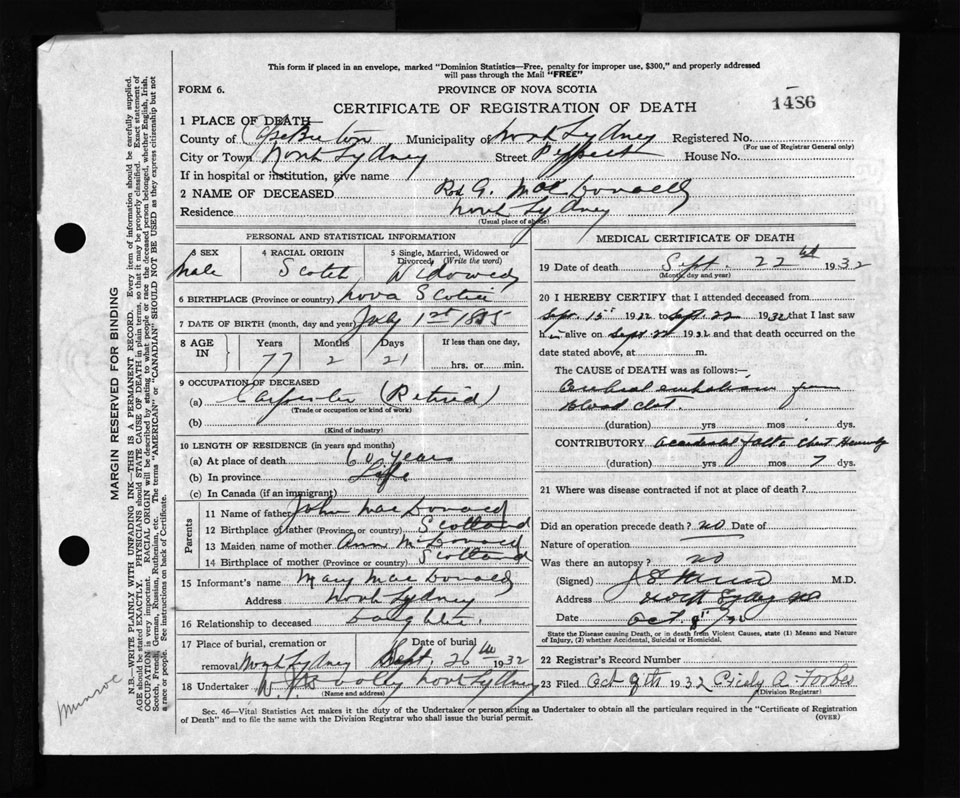 This form if placed in an envelope, marked "Dominion Statistics—Free, penalty for improper use, $300," and properly addressed
will pass through the Mail "FREE"
FORM 6. PROVINCE OF NOVA SCOTIA
CERTIFICATE OF REGISTRATION OF DEATH 1486
1 PLACE OF DEATH
County of Cape Breton Municipality of North Sydney Registered No.
(For use of Registrar General only)
City or Town North Sydney Street House No.
If in hospital or institution, give name
2 NAME OF DECEASED Rod G. MacDonald
Residence North Sydney
(Usual place of abode)
PERSONAL AND STATISTICAL INFORMATION
3 SEX 4 RACIAL ORIGIN 5 Single, Married, Widowed or
Divorced (Write the word)
Male Scotch Widowed
6 BIRTHPLACE (Province or country) Nova Scotia
7 DATE OF BIRTH (month, day and year) July 1st 1855
8 AGE IN Years Months Days If less than one day,
77 2 21 hrs. or min.
9 OCCUPATION OF DECEASED
(a) Carpenter (Retired)
(Trade or occupation or kind of work)
(b)
(Kind of industry)
10 LENGTH OF RESIDENCE (in years and months)
(a) At place of death 60 years
(b) In province Life
(c) In Canada (if an immigrant)
Parents
11 Name of father John MacDonald
12 Birthplace of father (Province, or country) Scotland
13 Maiden name of mother Ann McDonald
14 Birthplace of mother (Province or country) Scotland
15 Informant's name Mary MacDonald
Address North Sydney
16 Relationship to deceased Daughter
17 Place of burial, cremation or Date of burial
removal North Sydney Sept. 26th 1932
18 Undertaker North Sydney
(Name and address)
MEDICAL CERTIFICATE OF DEATH
19 Date of death Sept. 22nd 1932
(Month, day and year)
20 I HEREBY CERTIFY that I attended deceased from
Sept. 15th 1932 to Sept 22 1932 that I last saw
him alive on Sept 22 1932 and that death occurred on the
date stated above, at m.
The CAUSE of DEATH was as follows:—
Cerebral embolism from
Blood clot.
(duration) yrs mos dys.
CONTRIBUTORY Accidental fall
(duration) yrs mos 7 dys.
21 Where was disease contracted if not at place of death?
Did an operation precede death? no Date of
Nature of operation
Was there an autopsy? no
(Signed) M.D.
Address North Sydney NS
Date Oct. 8th/32
State the Disease causing Death, or in death from Violent Causes, state (1) Means and Nature
of Injury, (2) whether Accidental, Suicidal or Homicidal.
22 Registrar's Record Number
23 Filed Oct 9th 1932 A. Forbes
(Division Registrar)
Sec. 46—Vital Statistics Act makes it the duty of the Undertaker or person acting as Undertaker to obtain all the particulars required in the "Certificate of Registration
of Death" and to file the same with the Division Registrar who shall issue the burial permit. (OVER)
MARGIN RESERVED FOR BINDING
N.B.—WRITE PLAINLY WITH UNFADING INK—THIS IS A PERMANENT RECORD. Every item of information should be carefully supplied.
AGE should be stated EXACTLY. PHYSICIANS should STATE CAUSE OF DEATH in plain terms, so that it may be properly classified. Exact statement of
OCCUPATION is very important. RACIAL ORIGIN will be described by stating to what people or race the deceased person belonged, whether English, Irish,
Scotch, French, German, Russian, Ruthenian, etc. The terms "AMERICAN" or "CANADIAN" SHOULD NOT BE USED as they express citizenship but not
a race or people. See instructions on back of Certificate.
Munroe